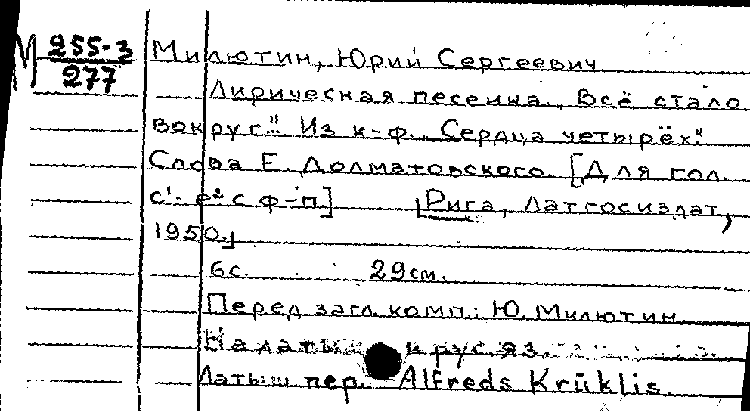 М 255-3
277
Милютин, Юрий Сергеевич
Лирическая песенка „Всё стало
вокруг" Из к-ф. „Сердца четырёх."
Слова Е. Долматовского [Для гол.
с¹- е² с ф-п] [Рига, Латгосиздат,
1950.]
6с. 29см.
Перед загл. комп.: Ю. Милютин
На латыш и рус. яз.
Латыш пер. Alfreds Krūklis